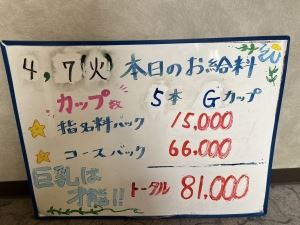 4,7(火) 本日のお給料
カップ数 5本 Gカップ
指名料バック 15,000
コースバック 66.000
巨乳は才能!! トータル 81,000